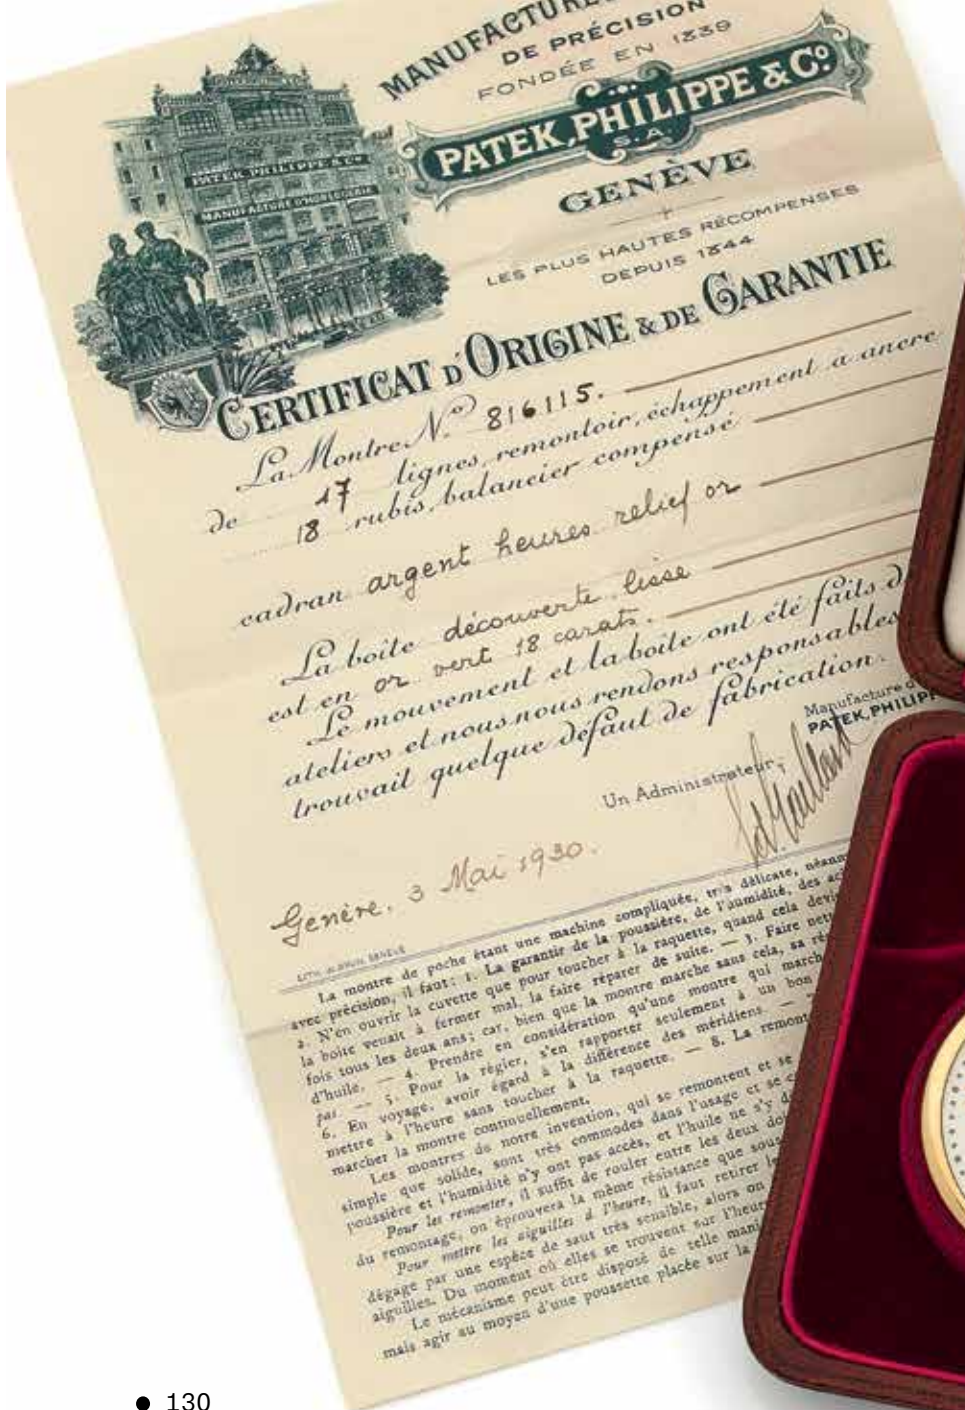 MANUFACTURE
DE PRÉCISION
FONDÉE EN 1839
PATEK, PHILIPPE & Cº
S.A.
GENÈVE
PATEK PHILIPPE & Cº
MANUFACTURE D'HORLOGERIE
LES PLUS HAUTES RÉCOMPENSES
DEPUIS 1844
CERTIFICAT D'ORIGINE & DE GARANTIE
La Montre Nº 816115.
de 17 lignes, remontoir, échappement à ancre
18 rubis, balancier compensé
cadran argent heures relief or
La boite découverte lisse
est en or vert 18 carats.
Le mouvement et la boite ont été faits d
ateliers et nous nous rendons responsables
trouvait quelque défaut de fabrication.
Manufacture d
PATEK, PHILIPP
Un Administrateur,
Genève, 3 Mai 1930.
La montre de poche étant une machine compliquée, très délicate, néanm
avec précision, il faut: 1. La garantir de la poussière, de l'humidité, des ac
2. N'en ouvrir la cuvette que pour toucher à la raquette, quand cela devi
la boite venait à fermer mal, la faire réparer de suite. — 3. Faire nett
fois tous les deux ans; car, bien que la montre marche sans cela, sa ré
d'huile. — 4. Prendre en considération qu'une montre qui march
pas — 5. Pour la régler, s'en rapporter seulement à un bon
6. En voyage, avoir égard à la différence des méridiens.
mettre à l'heure sans toucher à la raquette. — 8. La remont
marcher la montre continuellement.
Les montres de notre invention, qui se remontent et se
simple que solide, sont très commodes dans l'usage et se c
poussière et l'humidité n'y ont pas accès, et l'huile ne s'y d
Pour les remonter, il suffit de rouler entre les deux do
du remontage, on éprouvera la même résistance que sous
Pour mettre les aiguilles à l'heure, il faut retirer le
dégage par une espèce de saut très sensible, alors on
aiguilles. Du moment où elles se trouvent sur l'heur
Le mécanisme peut être disposé de telle mani
mais agir au moyen d'une poussette placée sur la
● 130